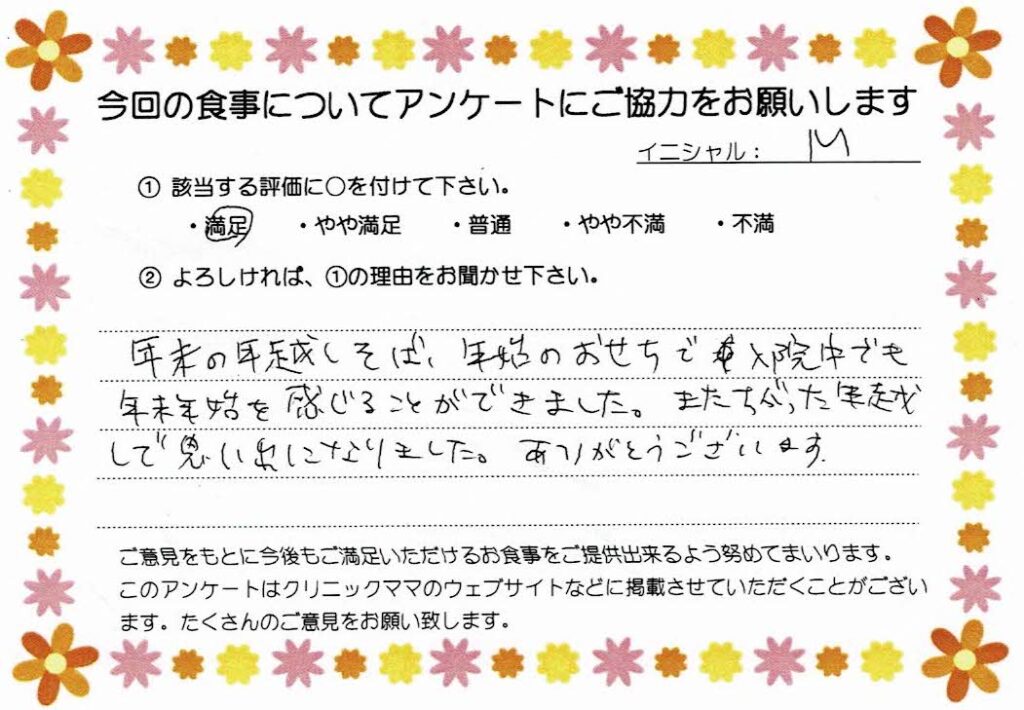 今回の食事についてアンケートにご協力をお願いします
イニシャル： M
① 該当する評価に○を付けて下さい。
・満足 ・やや満足 ・普通 ・やや不満 ・不満
② よろしければ、①の理由をお聞かせ下さい。
年末の年越しそば、年始のおせちで入院中でも
年末年始を感じることができました。またちがった年越
しで思い出になりました。ありがとうございます
ご意見をもとに今後もご満足いただけるお食事をご提供出来るよう努めてまいります。
このアンケートはクリニックママのウェブサイトなどに掲載させていただくことがござい
ます。たくさんのご意見をお願い致します。